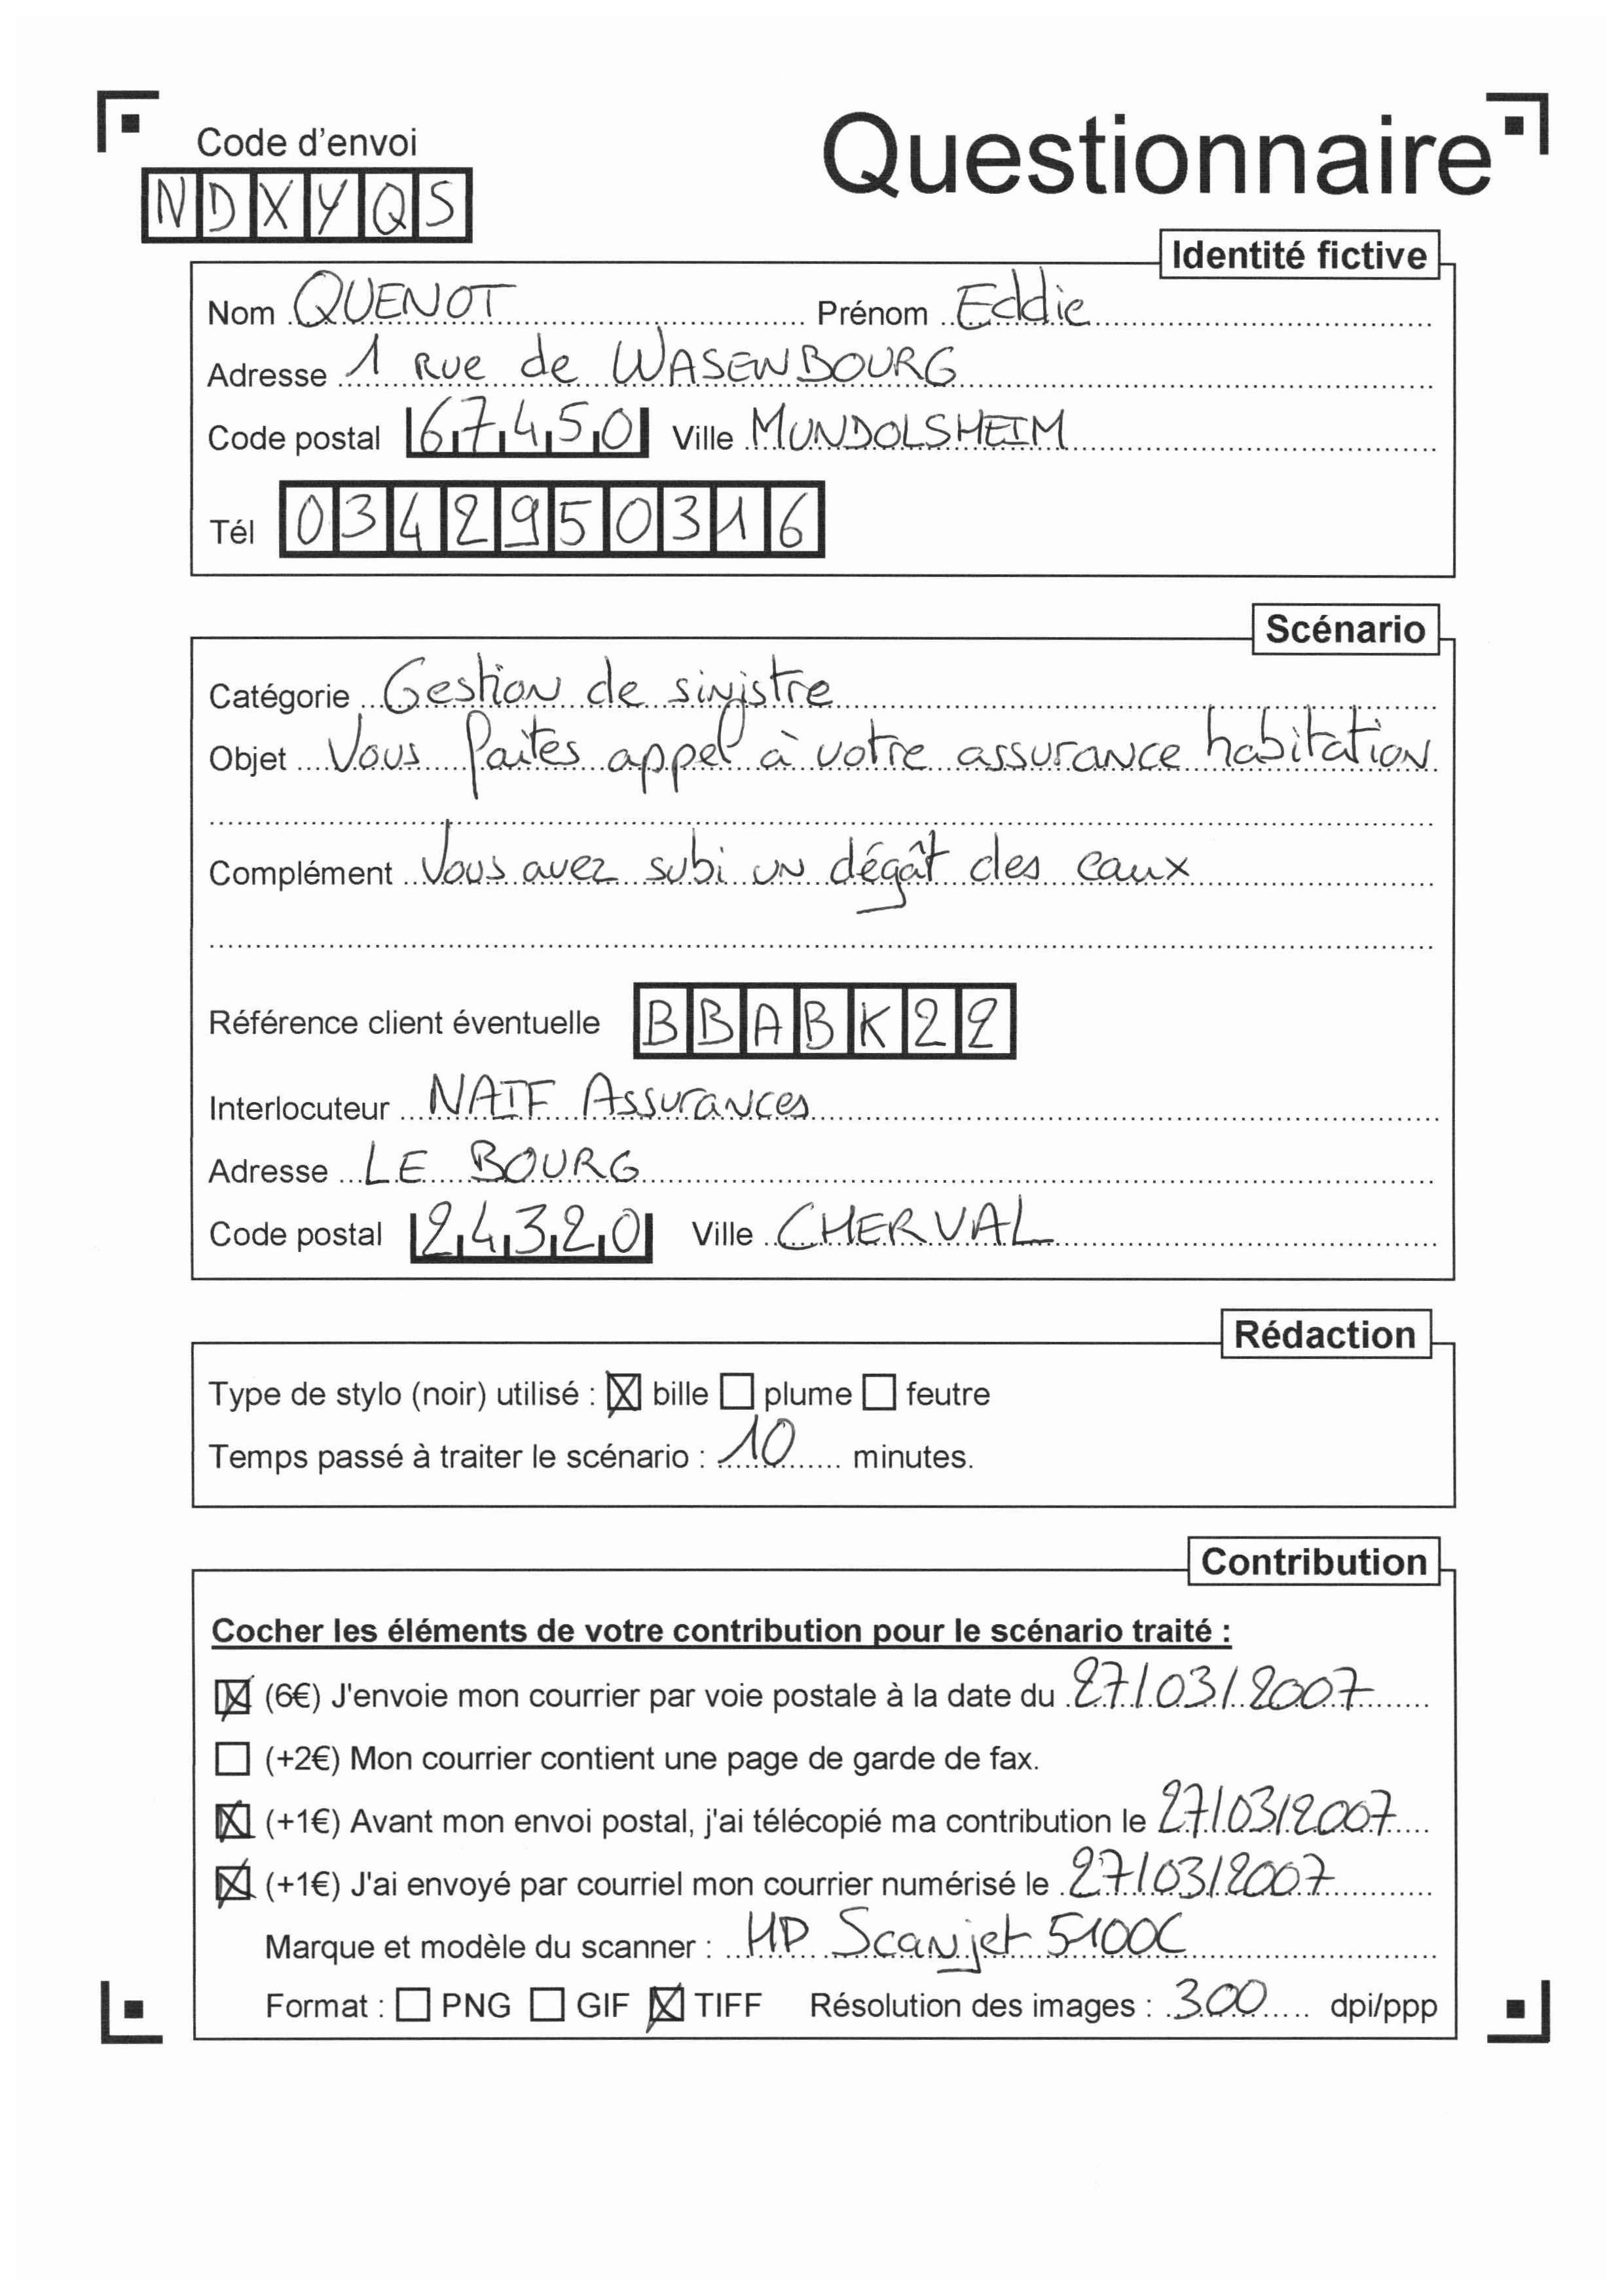 Code d'envoi
Questionnaire
NDXYQS
Identité fictive
Nom QUENOT Prénom Eddie
Adresse 1 Rue de WASENBOURG
Code postal 67450 Ville MUNDOLSHEIM
Tél 0342950316
Scénario
Catégorie Gestion de sinistre
Objet Vous faites appel à votre assurance habitation
Complément Vous avez subi un dégât des eaux
Référence client éventuelle BBABK22
Interlocuteur NAIF Assurances
Adresse LE BOURG
Code postal 24320 Ville CHERVAL
Rédaction
Type de stylo (noir) utilisé : ☒ bille ☐ plume ☐ feutre
Temps passé à traiter le scénario : 10 minutes.
Contribution
Cocher les éléments de votre contribution pour le scénario traité :
☒ (6€) J'envoie mon courrier par voie postale à la date du 27/03/2007
☐ (+2€) Mon courrier contient une page de garde de fax.
☒ (+1€) Avant mon envoi postal, j'ai télécopié ma contribution le 27/03/2007
☒ (+1€) J'ai envoyé par courriel mon courrier numérisé le 27/03/2007
Marque et modèle du scanner : HP Scanjet 5100C
Format : ☐ PNG ☐ GIF ☒ TIFF Résolution des images : 300 dpi/ppp